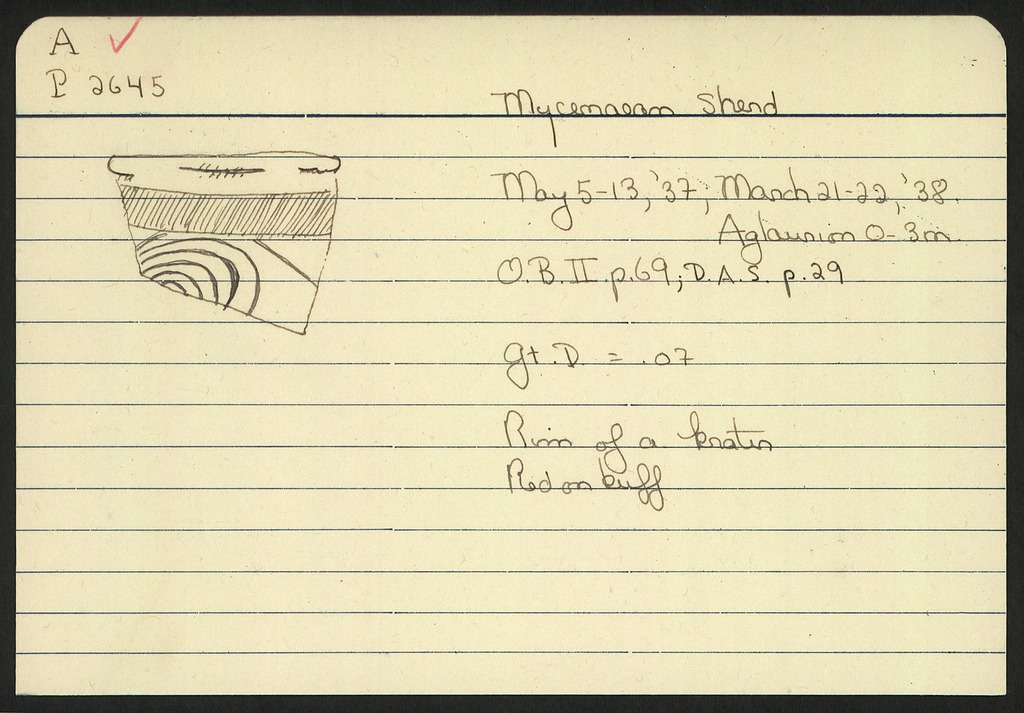 A
P 2645
Mycenaean Sherd
May 5-13, '37; March 21-22, '38.
Aglaurion 0-3m.
O.B. II p.69; D.A.S. p.29
gt. D = .07
Rim of a krater
Red on buff